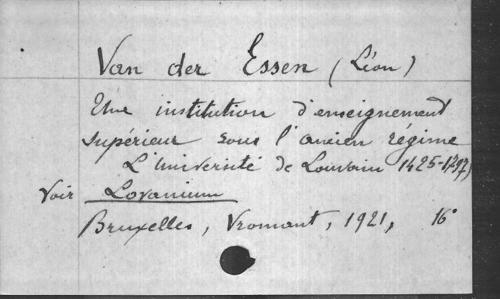 Van der Essen (Léon)
Une institution d'enseignement
supérieur sous l'ancien régime
L'Université de Louvain 1425-1797)
Voir Lovanium
Bruxelles, Vromant, 1921, 16°